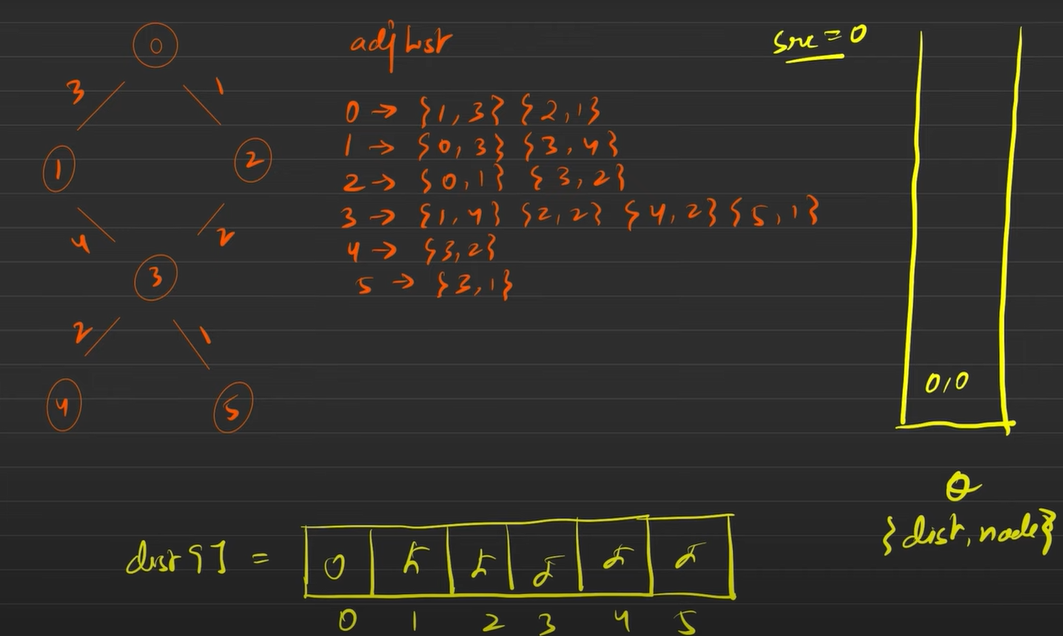 0
3 1
1
2
4 2
3
2 1
4
5
adj list
0 → {1,3} {2,1}
1 → {0,3} {3,4}
2 → {0,1} {3,2}
3 → {1,4} {2,2} {4,2} {5,1}
4 → {3,2}
5 → {3,1}
src = 0
0,0
Q
{dist, node}
dist[] =
0
0 1 2 3 4 5